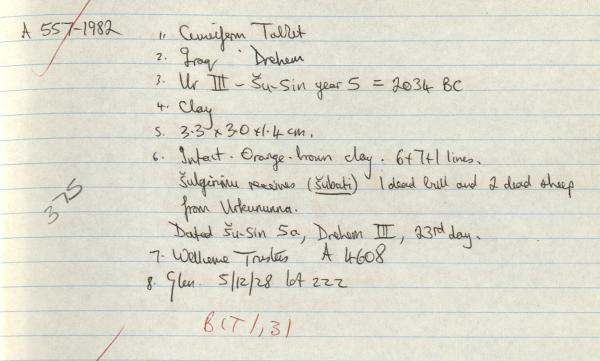 A 557-1982
1. Cuneiform Tablet
2. Iraq Drehem
3. Ur III - Šu-Sin year 5 = 2034 BC
4. Clay
5. 3.3 x 3.0 x 1.4 cm.
6. Intact. Orange-brown clay. 6+7+1 lines.
receives (šubati) 1 dead bull and 2 dead sheep
from Urkununna.
Dated Šu-Sin 5a, Drehem III, 23rd day.
7. Wellcome Trustees A 4608
8. Glen. 5/12/28 lot 222
375
BCT 1, 31